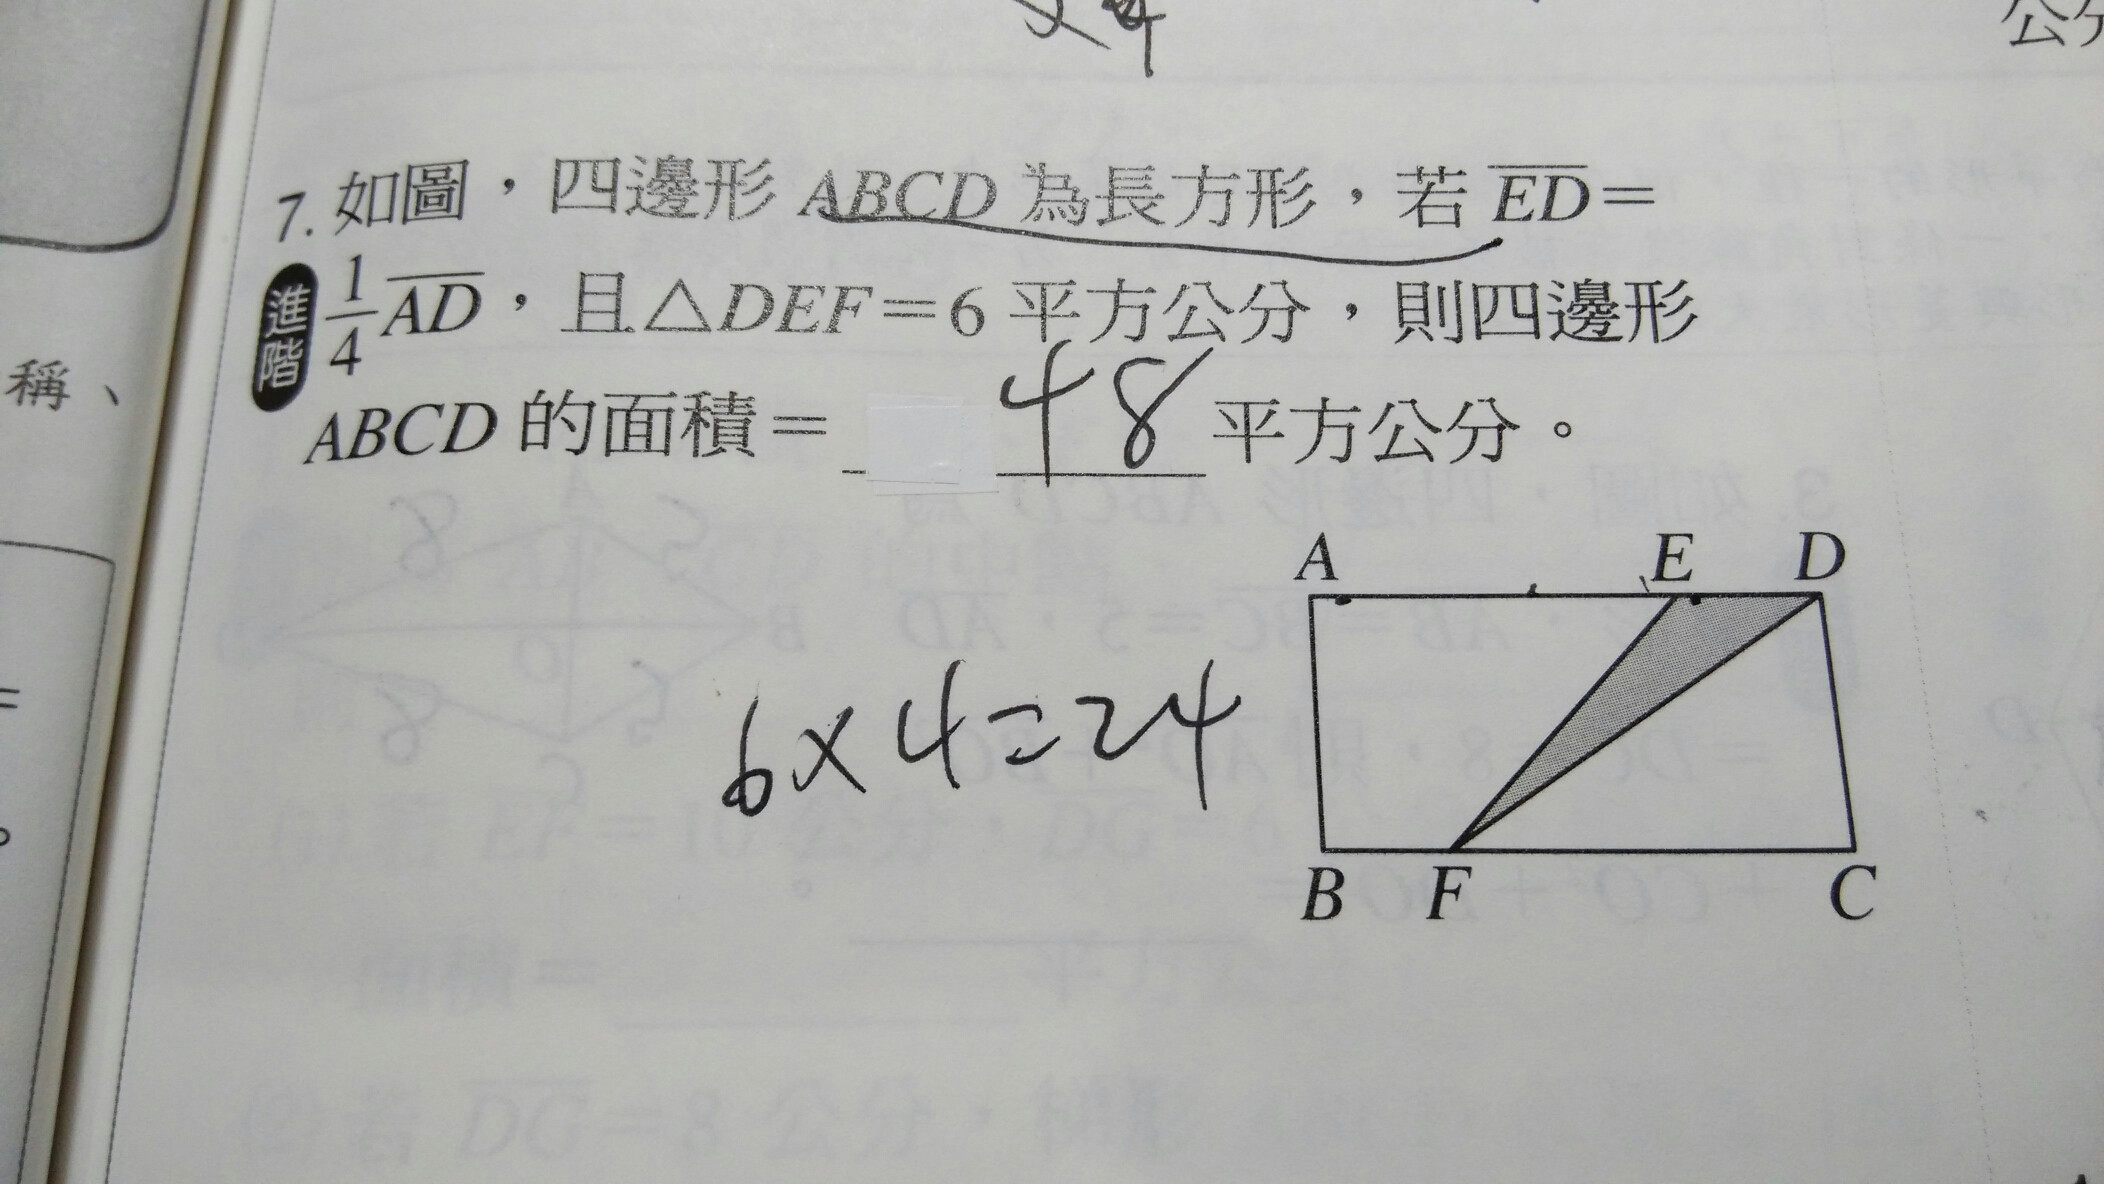 公分
7. 如圖，四邊形 ABCD 為長方形，若 ED=
進階
1/4 AD，且△DEF=6 平方公分，則四邊形
稱、
ABCD 的面積= 48 平方公分。
A E D
6×4=24
B F C